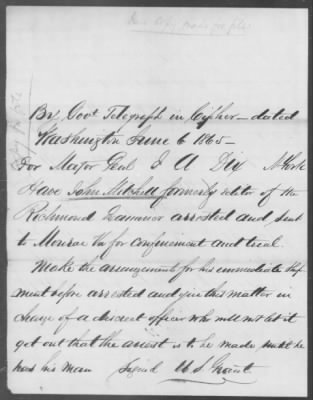 By Govt Telegraph in Cipher — dated
Washington June 6 1865 —
For Major Genl E A Dix N York
Have John Mitchell formerly editor of the
Richmond Examiner arrested and sent
to Monroe Va for confinement and trial.
Make the arrangements for his immediate ship
ment before arrested and give this matter in
charge of a discreet officer who will not let it
get out that the arrest is to be made until he
has his man Signed U S Grant